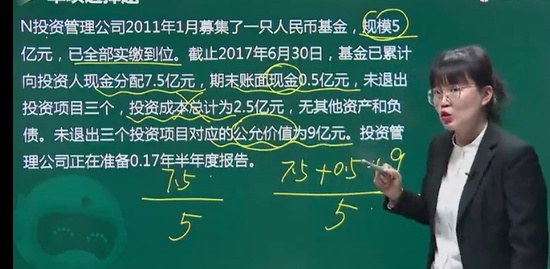 N投资管理公司2011年1月募集了一只人民币基金，规模5
亿元，已全部实缴到位。截止2017年6月30日，基金已累计
向投资人现金分配7.5亿元，期末账面现金0.5亿元，未退出
投资项目三个，投资成本总计为2.5亿元，无其他资产和负
债。未退出三个投资项目对应的公允价值为9亿元。投资管
理公司正在准备0.17年半年度报告。
7.5
5
7.5+0.5+9
5